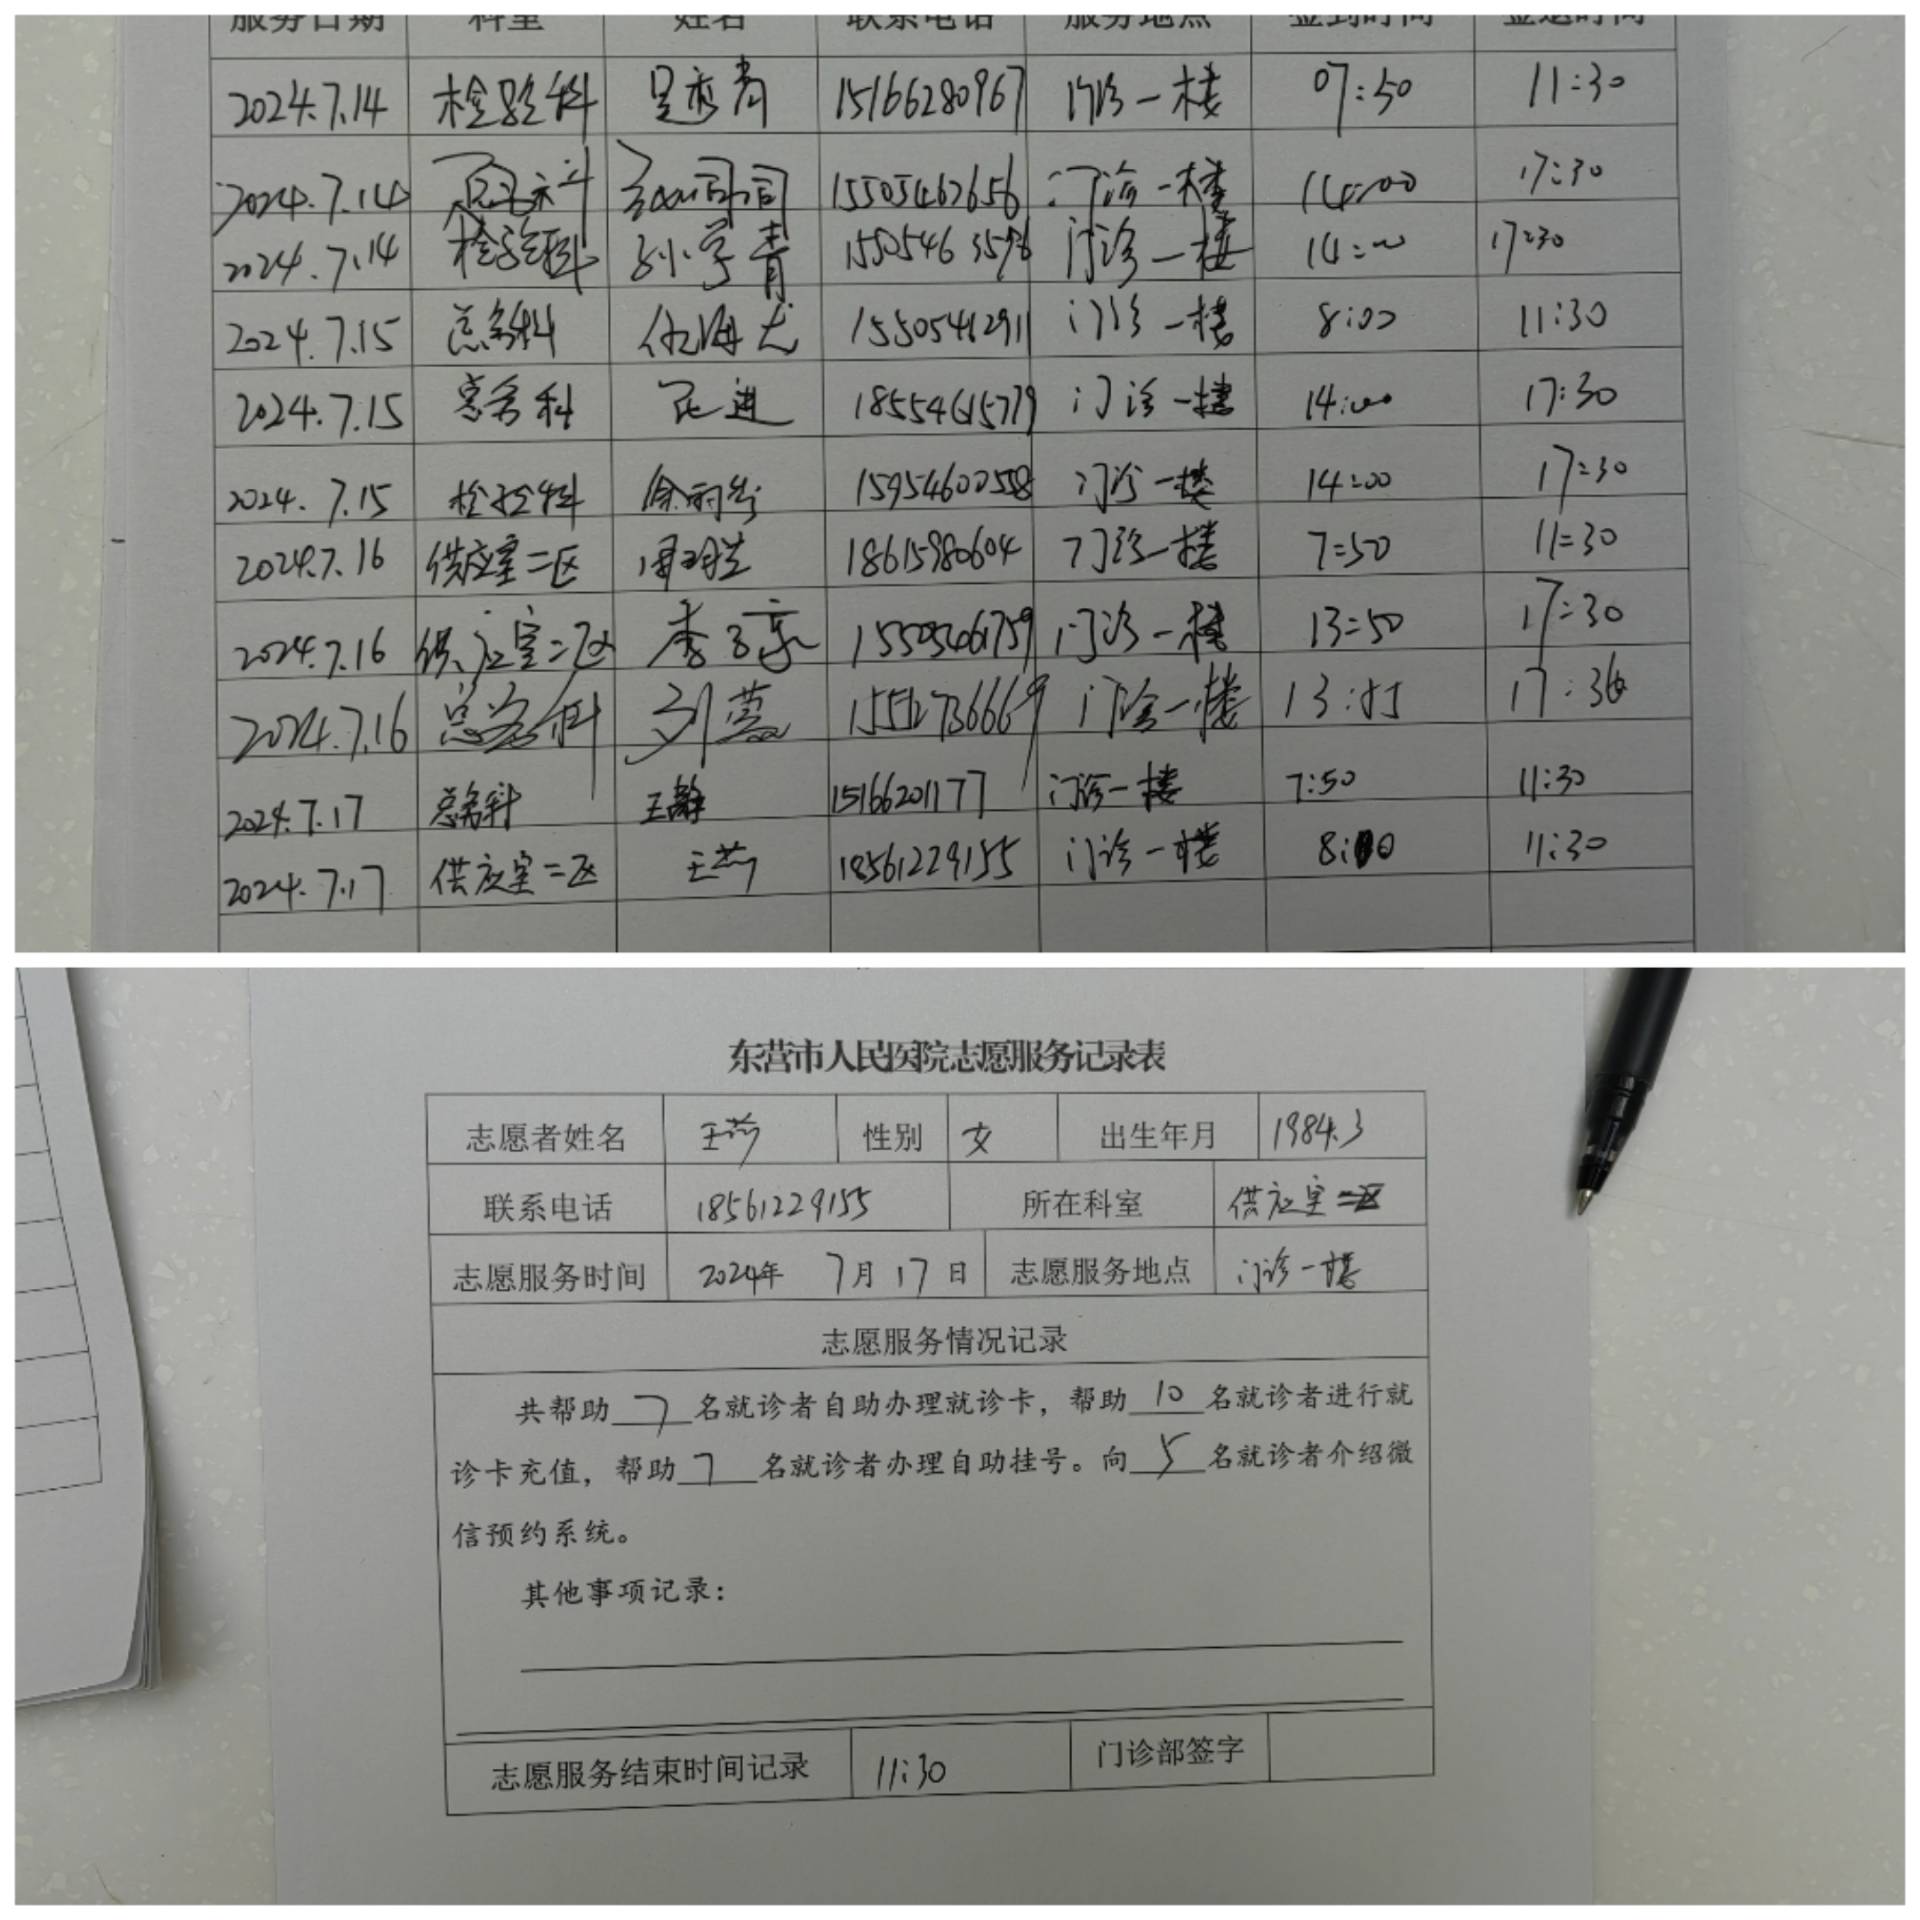 服务日期 科室 姓名 联系电话 服务地点 签到时间 签退时间
2024.7.14 检验科 15166280967 门诊一楼 07:50 11:30
2024.7.14 15505462656 门诊一楼 14:00 17:30
2024.7.14 检验科 孙学青 门诊一楼 14:00 17:30
2024.7.15 总务科 15505412911 门诊一楼 8:00 11:30
2024.7.15 总务科 18554615779 门诊一楼 14:00 17:30
2024.7.15 检验科 15954600558 门诊一楼 14:00 17:30
2024.7.16 供应室二区 18615980604 门诊一楼 7:50 11:30
2024.7.16 供应室二区 门诊一楼 13:50 17:30
2024.7.16 总务科 门诊一楼 17:30
2024.7.17 总务科 王静 15166201177 门诊一楼 7:50 11:30
2024.7.17 供应室二区 18561229155 门诊一楼 8:00 11:30
东营市人民医院志愿服务记录表
志愿者姓名 性别 女 出生年月 1984.3
联系电话 18561229155 所在科室 供应室二区
志愿服务时间 2024年 7月17日 志愿服务地点 门诊一楼
志愿服务情况记录
共帮助 7 名就诊者自助办理就诊卡，帮助 10 名就诊者进行就
诊卡充值，帮助 7 名就诊者办理自助挂号。向 5 名就诊者介绍微
信预约系统。
其他事项记录：
志愿服务结束时间记录 11:30 门诊部签字